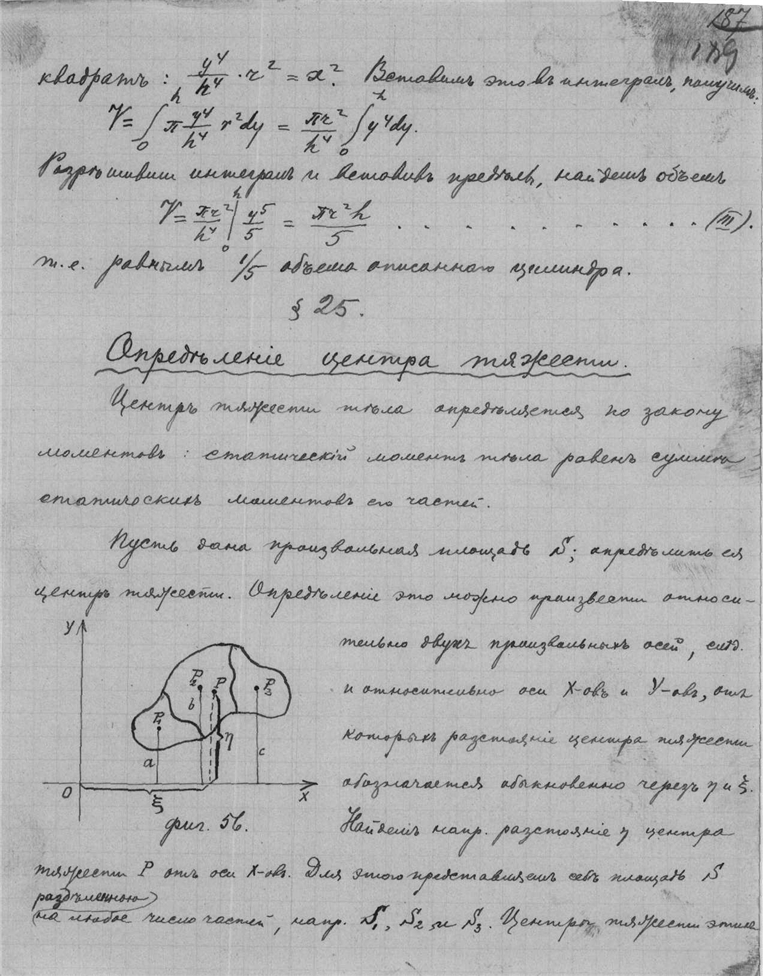 187
189
квадратъ : y⁴/h⁴ · r² = x². Вставимъ это въ интегралъ, получимъ:
V = ∫₀ʰ π y⁴/h⁴ r² dy = πr²/h⁴ ∫₀ʰ y⁴dy.
Разрѣшивши интегралъ и вставивъ предѣлы, найдемъ объемъ
V = πr²/h⁴ |₀ʰ y⁵/5 = πr²h/5 . . . . . . . . . . . (III).
т.е. равнымъ 1/5 объема описаннаго цилиндра.
§ 25.
Опредѣленіе центра тяжести.
Центръ тяжести тѣла опредѣляется по закону
моментовъ : статическій моментъ тѣла равенъ суммѣ
статическихъ моментовъ его частей.
Пусть дана произвольная площадь S; опредѣлить ея
центръ тяжести. Опредѣленіе это можно произвести относи-
тельно двухъ произвольныхъ осей, слѣд.
и относительно оси X-овъ и Y-овъ, отъ
которыхъ разстояніе центра тяжести
обозначается обыкновенно черезъ η и ξ.
Найдемъ напр. разстояніе η центра
Y
P₁ P₂ P P₃
a b η c
O ξ X
фиг. 56.
тяжести P отъ оси X-овъ. Для этого представляемъ себѣ площадь S
раздѣленною
на любое число частей, напр. S₁, S₂ и S₃. Центры тяжести этихъ